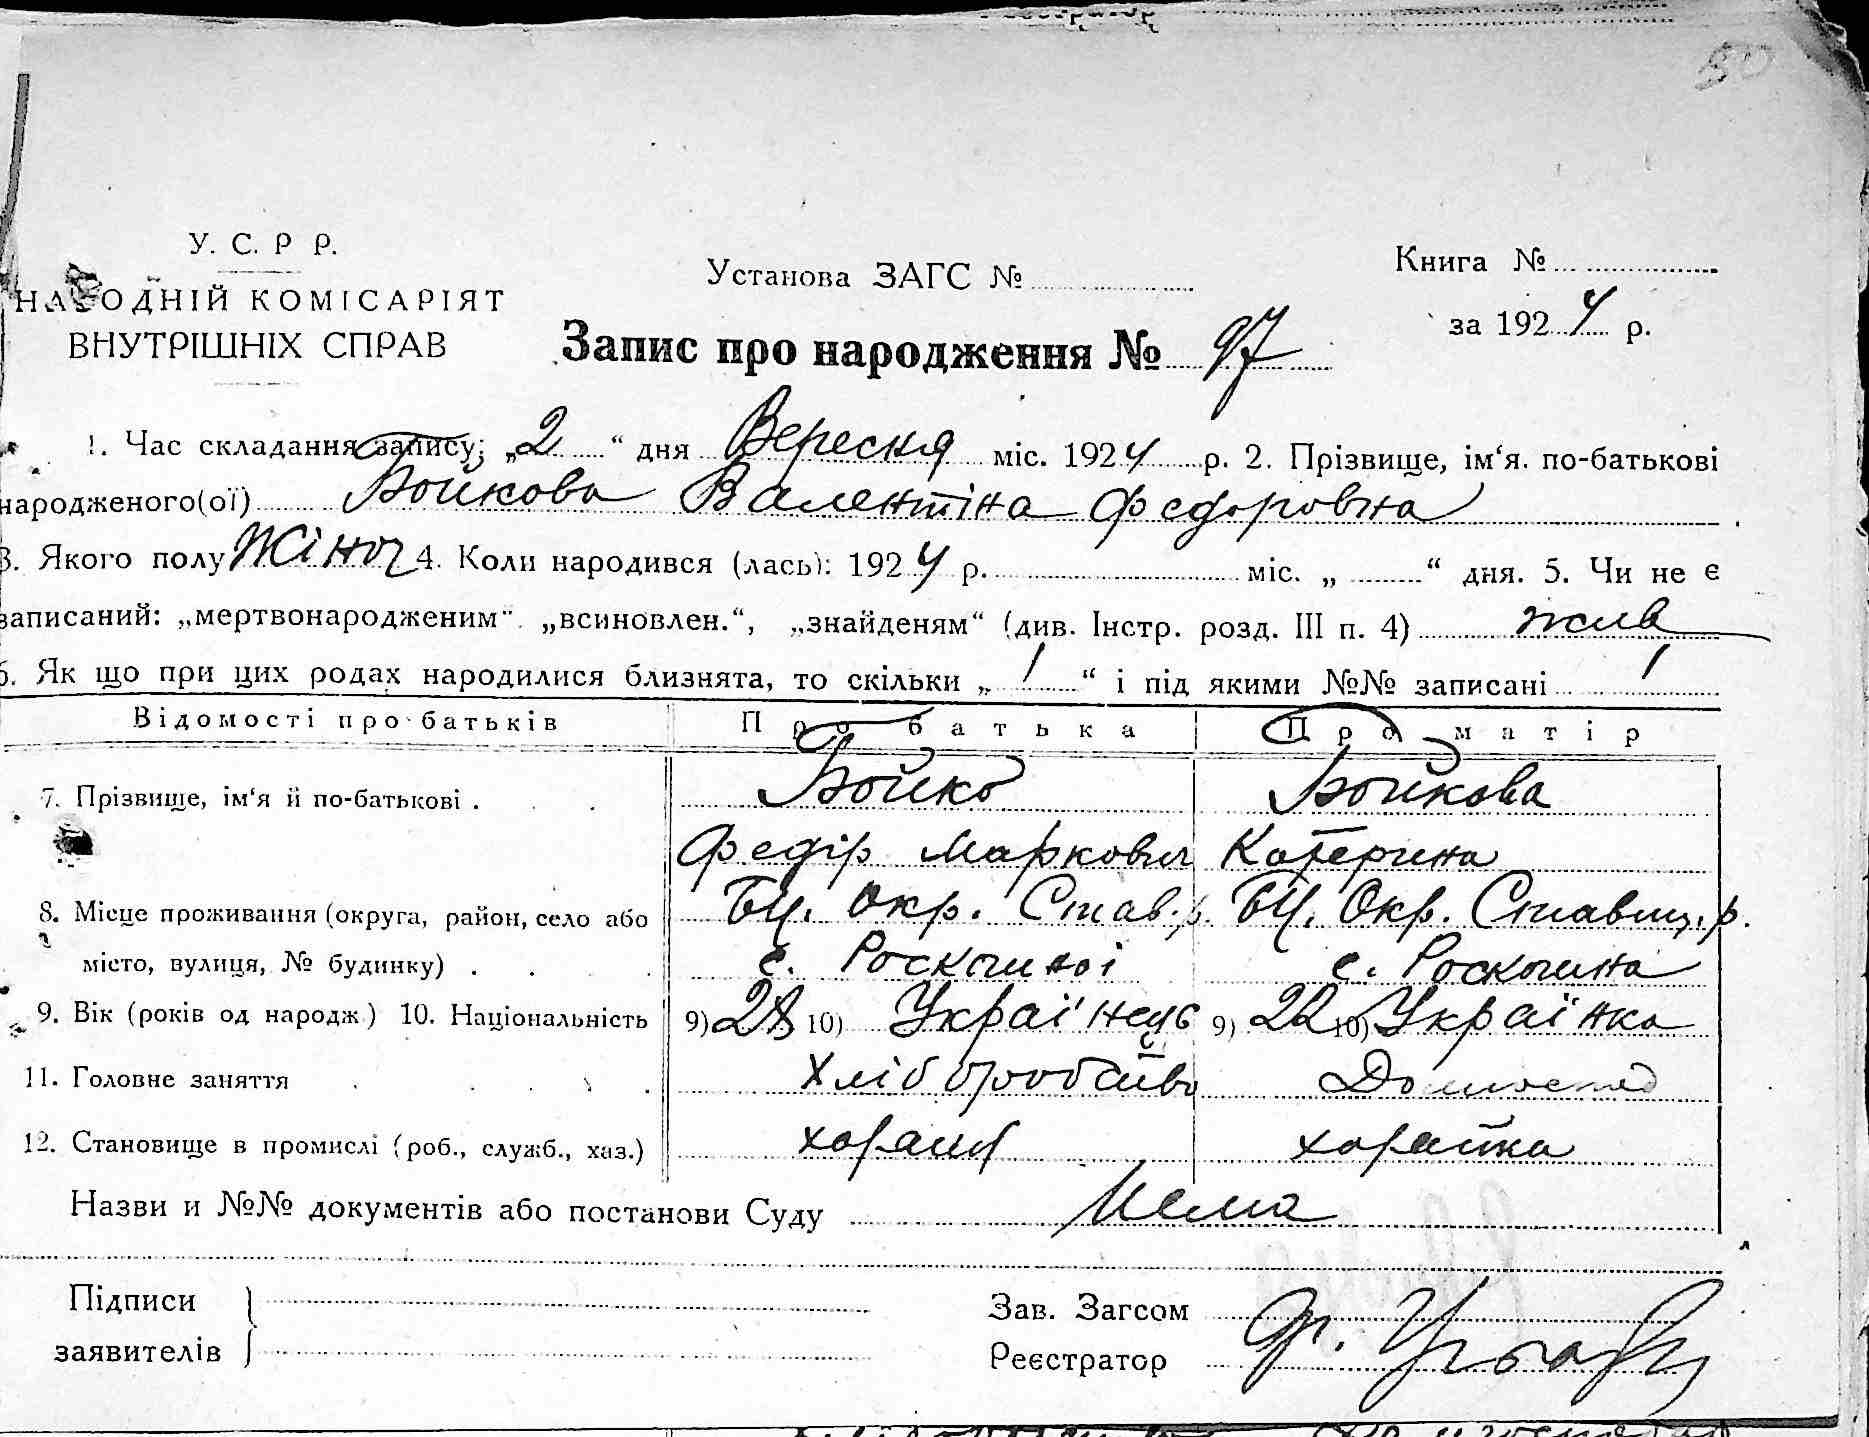 У. С. Р Р.
НАРОДНІЙ КОМІСАРІЯТ
ВНУТРІШНІХ СПРАВ
Установа ЗАГС №
Книга №
за 1924 р.
Запис про народження № 97
1. Час складання запису: „2“ дня Вересня міс. 1924 р. 2. Прізвище, ім‘я. по-батькові
народженого(ої) Бойкова Валентіна Федоровна
3. Якого полу Жіноч 4. Коли народився (лась): 1924 р. міс. „ “ дня. 5. Чи не є
записаний: „мертвонародженим“ „всиновлен.“, „знайденям“ (див. Інстр. розд. III п. 4) жив
6. Як що при цих родах народилися близнята, то скільки „ / “ і під якими №№ записані /
Відомості про батьків Про батька Про матір
7. Прізвище, ім‘я й по-батькові . Бойко Бойкова
Федір Маркович Катерина
8. Місце проживання (округа, район, село або БЦ. Окр. Став. р. БЦ. Окр. Ставищ. р.
місто, вулиця, № будинку) . с. Роскошної с. Роскошна
9. Вік (років од народж.) 10. Національність 9) 28 10) Украінець 9) 22 10) Украінка
11. Головне заняття Хлібороб
12. Становище в промислі (роб., служб., хаз.)
Назви и №№ документів або постанови Суду Нема
Підписи
заявителів
Зав. Загсом
Реєстратор